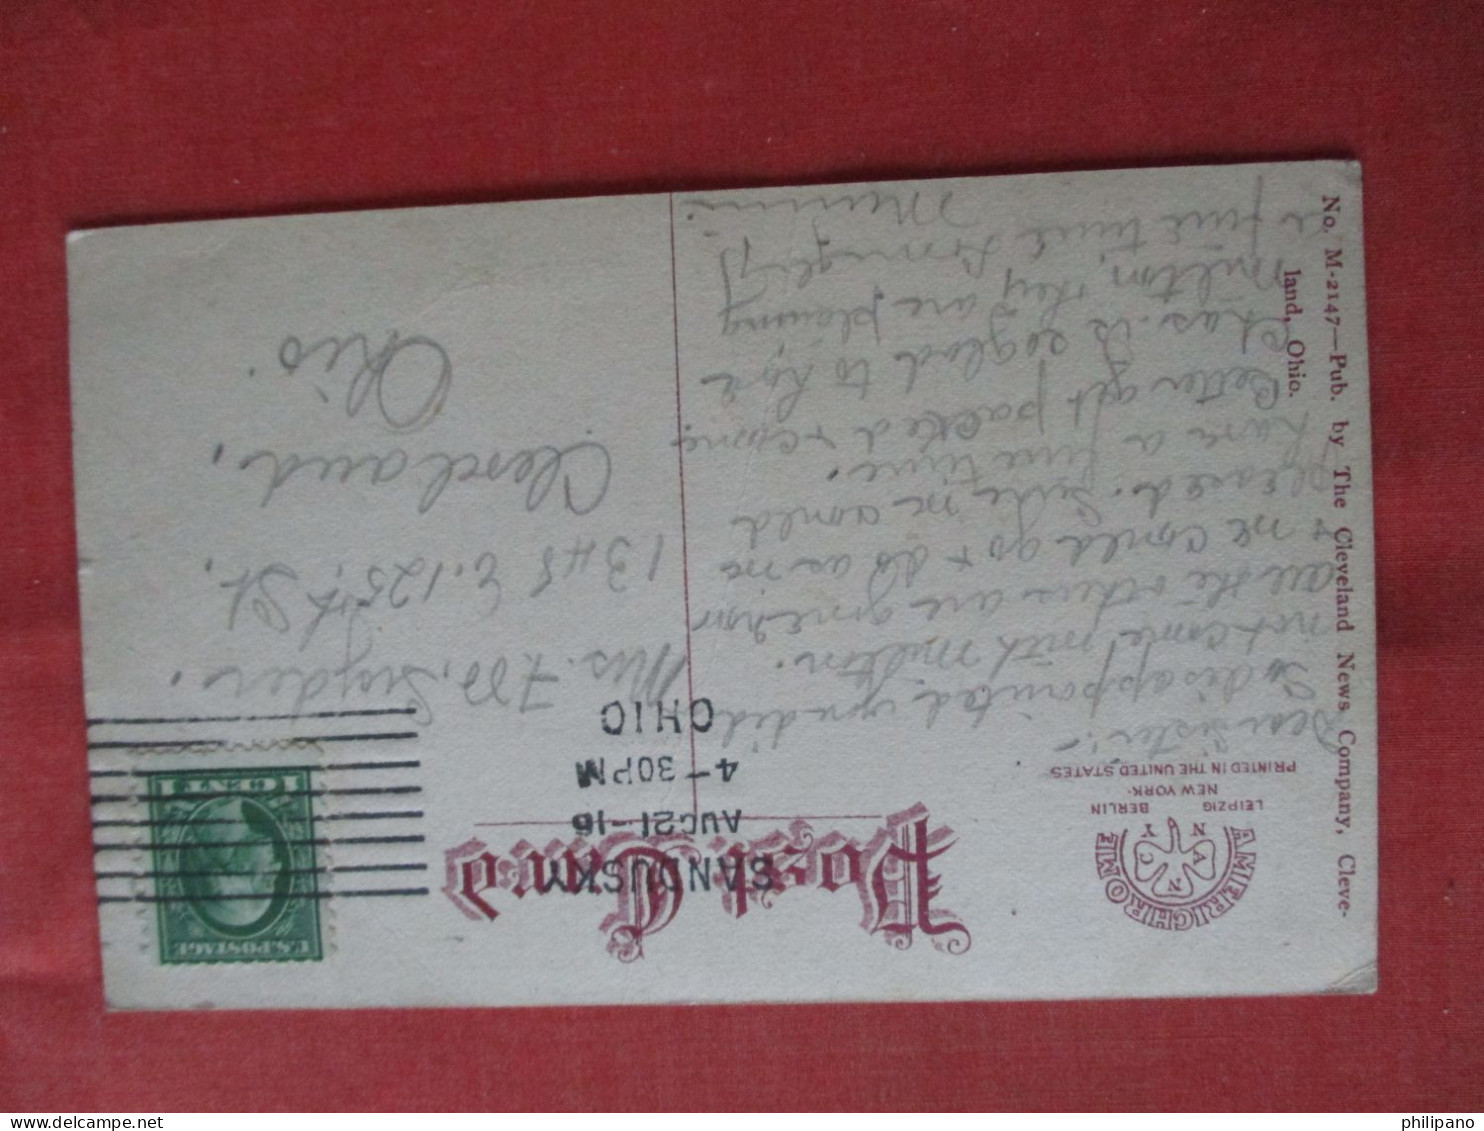 AMERICHROME
A N C N Y
LEIPZIG BERLIN
NEW YORK
PRINTED IN THE UNITED STATES
Post Card
SANDUSKY
AUG 21-16
4-30PM
OHIO
U.S. POSTAGE
1 CENT 1
Dear Sister:-
So disappointed you did
not come with Milton.
all the others are gone now
& we could go & do as we
pleased. Sure we could
have a fine time.
Better get packed & come.
Chas. is so glad to have
Milton, they are planning
a fine time
Minnie.
Mrs. F. W. Snyder.
1348 E. 125th St.
Cleveland,
Ohio.
No. M-2147—Pub. by The Cleveland News Company, Cleve-
land, Ohio.
philipano